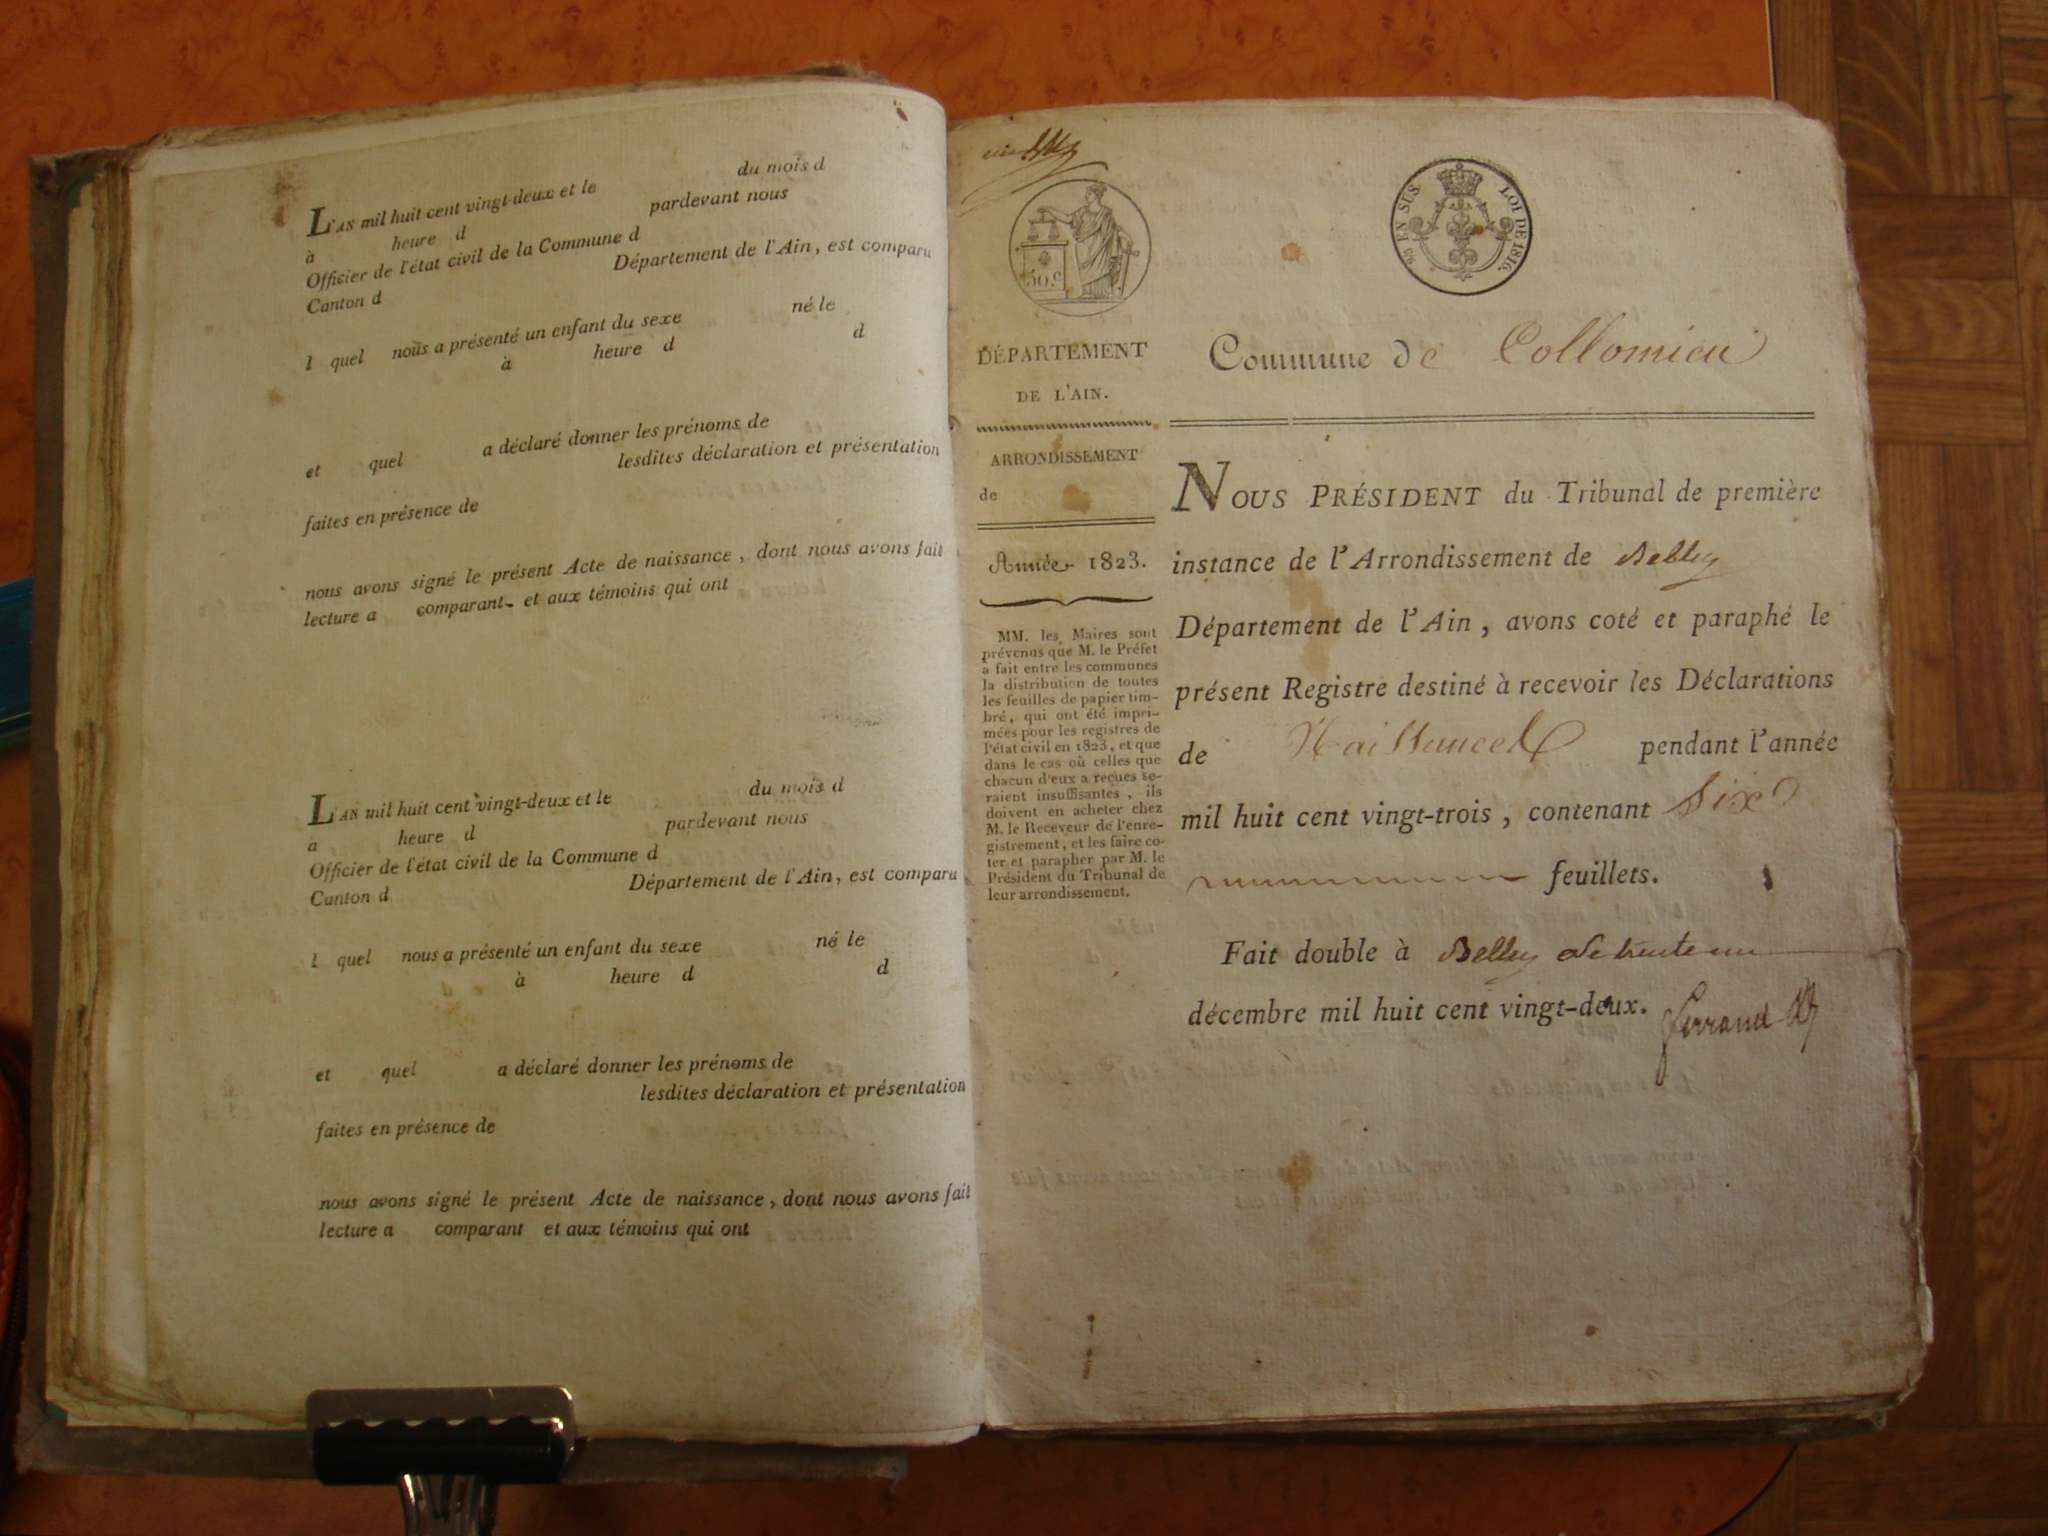 L'AN mil huit cent vingt-deux et le du mois d
à heure d pardevant nous
Officier de l'état civil de la Commune d
Canton d Département de l'Ain, est comparu
l quel nous a présenté un enfant du sexe né le
à heure d d
et quel a déclaré donner les prénoms de
lesdites déclaration et présentation
faites en présence de
nous avons signé le présent Acte de naissance, dont nous avons fait
lecture a comparant et aux témoins qui ont
L'AN mil huit cent vingt-deux et le du mois d
a heure d pardevant nous
Officier de l'état civil de la Commune d
Canton d Département de l'Ain, est comparu
l quel nous a présenté un enfant du sexe né le
à heure d d
et quel a déclaré donner les prénoms de
lesdites déclaration et présentation
faites en présence de
nous avons signé le présent Acte de naissance, dont nous avons fait
lecture a comparant et aux témoins qui ont
50.c
EN SUS LOI DE 1816.
DÉPARTEMENT
DE L'AIN.
ARRONDISSEMENT
de
Année 1823.
MM. les Maires sont
prévenus que M. le Préfet
a fait entre les communes
la distribution de toutes
les feuilles de papier tim-
bré, qui ont été impri-
mées pour les registres de
l'état civil en 1823, et que
dans le cas où celles que
chacun d'eux a reçues se-
raient insuffisantes, ils
doivent en acheter chez
M. le Receveur de l'enre-
gistrement, et les faire co-
ter et parapher par M. le
Président du Tribunal de
leur arrondissement.
Commune de Collomieu
NOUS PRÉSIDENT du Tribunal de première
instance de l'Arrondissement de Belley
Département de l'Ain, avons coté et paraphé le
présent Registre destiné à recevoir les Déclarations
de Naissances pendant l'année
mil huit cent vingt-trois, contenant Six
feuillets.
Fait double à Belley le trente un
décembre mil huit cent vingt-deux.
ferrand